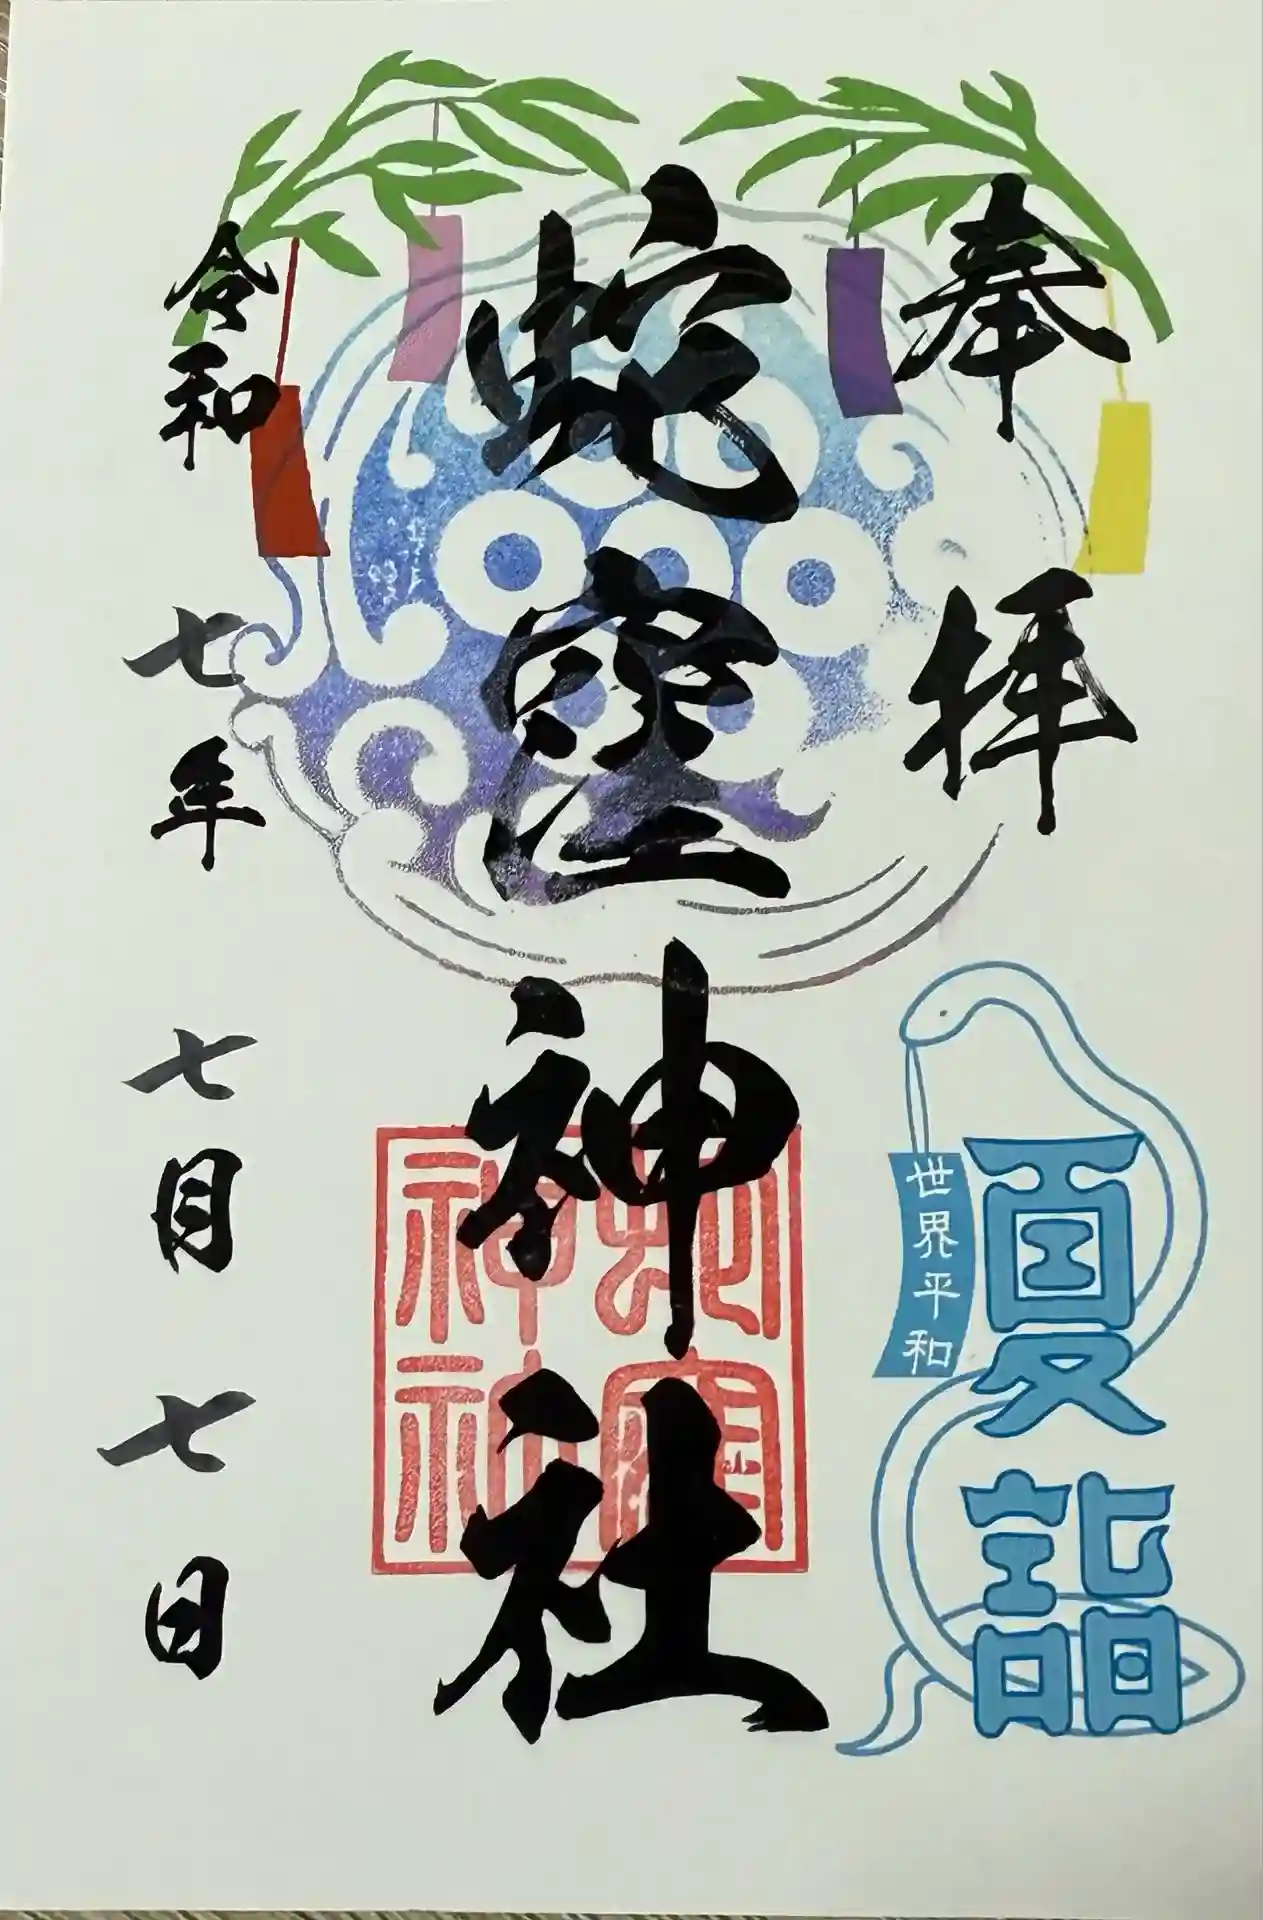 奉拝
夏詣
世界平和
蛇窪神社
令和七年七月七日